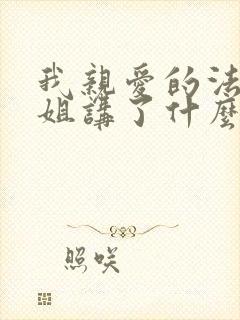 我親愛的法
姐講了什麼
照咲